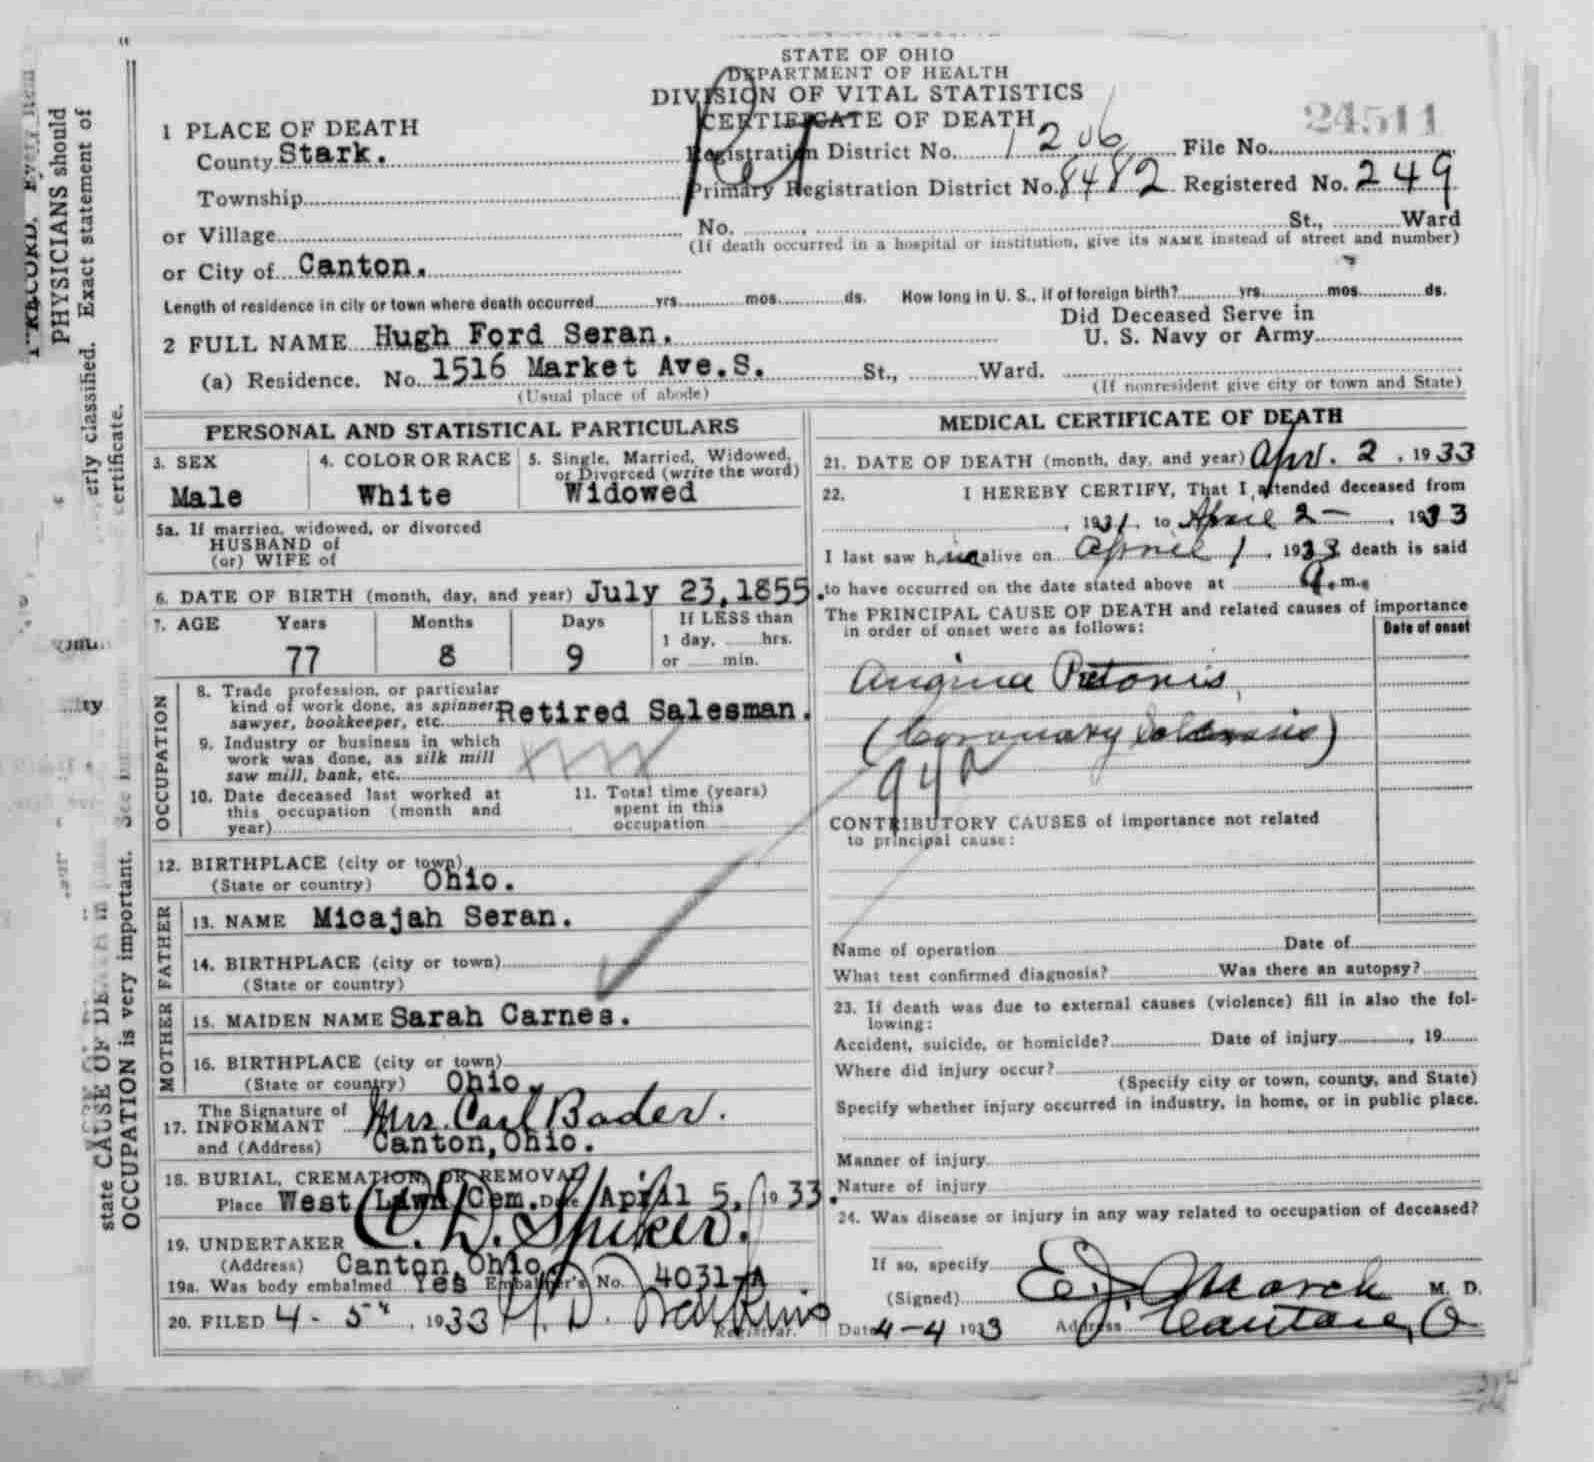 STATE OF OHIO
DEPARTMENT OF HEALTH
DIVISION OF VITAL STATISTICS
CERTIFICATE OF DEATH
24511
1 PLACE OF DEATH
County Stark.
Registration District No. 1206 File No.
Township
Primary Registration District No. 8482 Registered No. 249
or Village
No. St., Ward
(If death occurred in a hospital or institution, give its NAME instead of street and number)
or City of Canton.
Length of residence in city or town where death occurred yrs. mos. ds. How long in U. S., if of foreign birth? yrs. mos. ds.
2 FULL NAME Hugh Ford Seran.
Did Deceased Serve in
U. S. Navy or Army
(a) Residence. No. 1516 Market Ave.S. St., Ward.
(Usual place of abode)
(If nonresident give city or town and State)
PERSONAL AND STATISTICAL PARTICULARS
3. SEX
Male
4. COLOR OR RACE
White
5. Single, Married, Widowed,
or Divorced (write the word)
Widowed
5a. If married, widowed, or divorced
HUSBAND of
(or) WIFE of
6. DATE OF BIRTH (month, day, and year) July 23, 1855.
7. AGE Years Months Days If LESS than
1 day, hrs.
or min.
77 8 9
OCCUPATION
8. Trade profession, or particular
kind of work done, as spinner,
sawyer, bookkeeper, etc. Retired Salesman.
9. Industry or business in which
work was done, as silk mill
saw mill, bank, etc.
10. Date deceased last worked at
this occupation (month and
year)
11. Total time (years)
spent in this
occupation
12. BIRTHPLACE (city or town)
(State or country) Ohio.
FATHER
13. NAME Micajah Seran.
14. BIRTHPLACE (city or town)
(State or country)
MOTHER
15. MAIDEN NAME Sarah Carnes.
16. BIRTHPLACE (city or town)
(State or country) Ohio.
17. The Signature of
INFORMANT Mrs. Carl Bader.
and (Address) Canton, Ohio.
18. BURIAL, CREMATION, OR REMOVAL
Place West Lawn Cem. Date April 5, 1933.
19. UNDERTAKER C. D. Spiker.
(Address) Canton, Ohio
19a. Was body embalmed Yes Embalmer's No. 4031-A
20. FILED 4-5, 1933 H. D. Watkins
Registrar.
MEDICAL CERTIFICATE OF DEATH
21. DATE OF DEATH (month, day, and year) Apr. 2, 1933
22. I HEREBY CERTIFY, That I attended deceased from
, 1931, to April 2, 1933
I last saw him alive on April 1, 1933 death is said
to have occurred on the date stated above at m.
The PRINCIPAL CAUSE OF DEATH and related causes of importance
in order of onset were as follows:
Date of onset
Angina Pectoris,
(Coronary Sclerosis)
94
CONTRIBUTORY CAUSES of importance not related
to principal cause:
Name of operation Date of
What test confirmed diagnosis? Was there an autopsy?
23. If death was due to external causes (violence) fill in also the fol-
lowing:
Accident, suicide, or homicide? Date of injury , 19
Where did injury occur?
(Specify city or town, county, and State)
Specify whether injury occurred in industry, in home, or in public place.
Manner of injury
Nature of injury
24. Was disease or injury in any way related to occupation of deceased?
If so, specify
(Signed) E. J. March M. D.
Date 4-4 1933 Address Canton, O
PHYSICIANS should
Exact statement of
erly classified.
certificate.
state CAUSE OF DEATH in
OCCUPATION is very important.